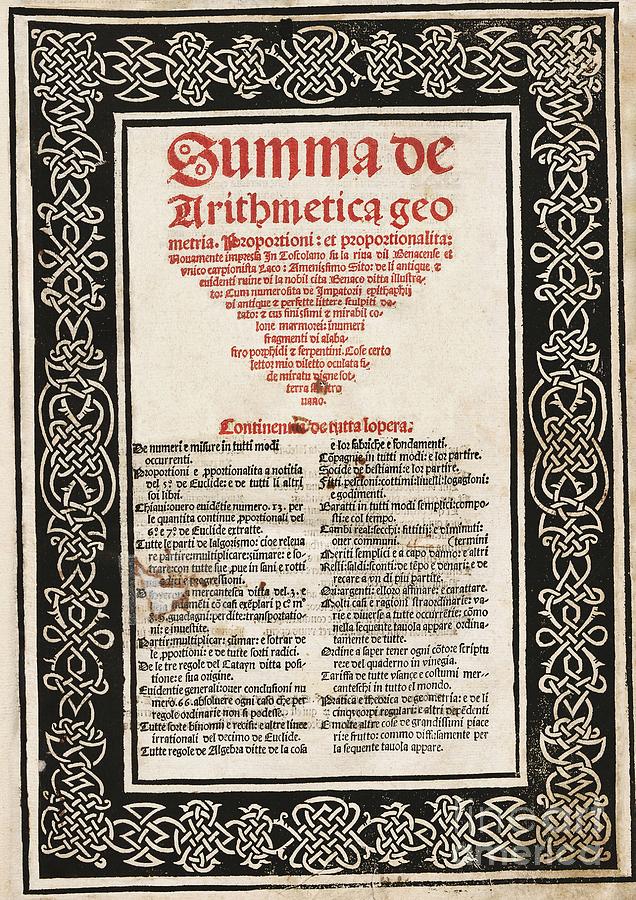 Summa de
Arithmetica geo
metria. Proportioni: et proportionalita:
Novamente impressa In Toscolano su la riva dil Benacense et
unico carpionista Laco: Amenissimo Sito: de li antique &
evidenti ruine di la nobil cita Benaco ditta illustra-
to: Cum numerosita de Impatorij epithaphij
di antique & perfette littere sculpiti do-
tato: & cus finissimi & mirabil co-
lone marmorei: inumeri
fragmenti di alaba-
stro porphidi & serpentini. Cose certo
lettor mio diletto oculata fi-
de miratu digne sot-
terra
uano.
Continentia de tutta lopera:
De numeri e misure in tutti modi
occurrenti.
Proportioni e pportionalita a notitia
del 5º de Euclide: e de tutti li altri
soi libri.
Chiavi: overo evidētie numero. 13. per
le quantita continue pportionali del
6º e 7º de Euclide extratte.
Tutte le parti de lalgorismo: cioe releva
re partire: multiplicare: sūmare: e so-
trare: con tutte sue pue in sani e rotti
radici e progressioni.
mercantesca ditta del. 3. e
mēti cō casi exēplari
guadagni: perdite: transportatio-
ni: e investite.
Partir: multiplicar: sūmar: e sotrar de
le pportioni: e de tutte sorti radici.
De le tre regole del Catayn ditta posi-
tione: e sua origine.
Evidentie generali: over conclusioni nu
mero. 66. absolvere ogni caso che per
regole ordinarie non si podesse.
Tutte sorte binomii e recisi: e altre linee
irrationali del decimo de Euclide.
Tutte regole de Algebra ditte de la cosa
e lor fabriche e fondamenti.
Cōpagnie in tutti modi: e lor partire.
Socide de bestiami: e lor partire.
Fitti: pesioni: cottimi: livelli: logagioni:
e godimenti.
Baratti in tutti modi semplici: compo-
sti: e col tempo.
Cambi real: secchi: fittitii: e diminuti:
over communi. (termini
Meriti semplici e a capo danno: e altri
Resti: saldi: sconti: de tēpo e denari: e de
recare a un di piu partite.
Ori: argenti: e lloro affinare: e carattare.
Molti casi e ragioni straordinarie: va-
rie e diverse a tutte occurrētie: cōmo
nella sequente tavola appare ordina-
tamente de tutte.
Ordine a saper tener ogni cōto e scriptu
re: e del quaderno in vinegia.
Tariffa de tutte usance e costumi mer-
canteschi in tutto el mondo.
Pratica e theorica de geometria: e de li
cinque corpi regulari: e altri depēdenti
E molte altre cose de grandissimi piace
ri: e frutto: commo diffusamente per
la sequente tavola appare.
fine art
america